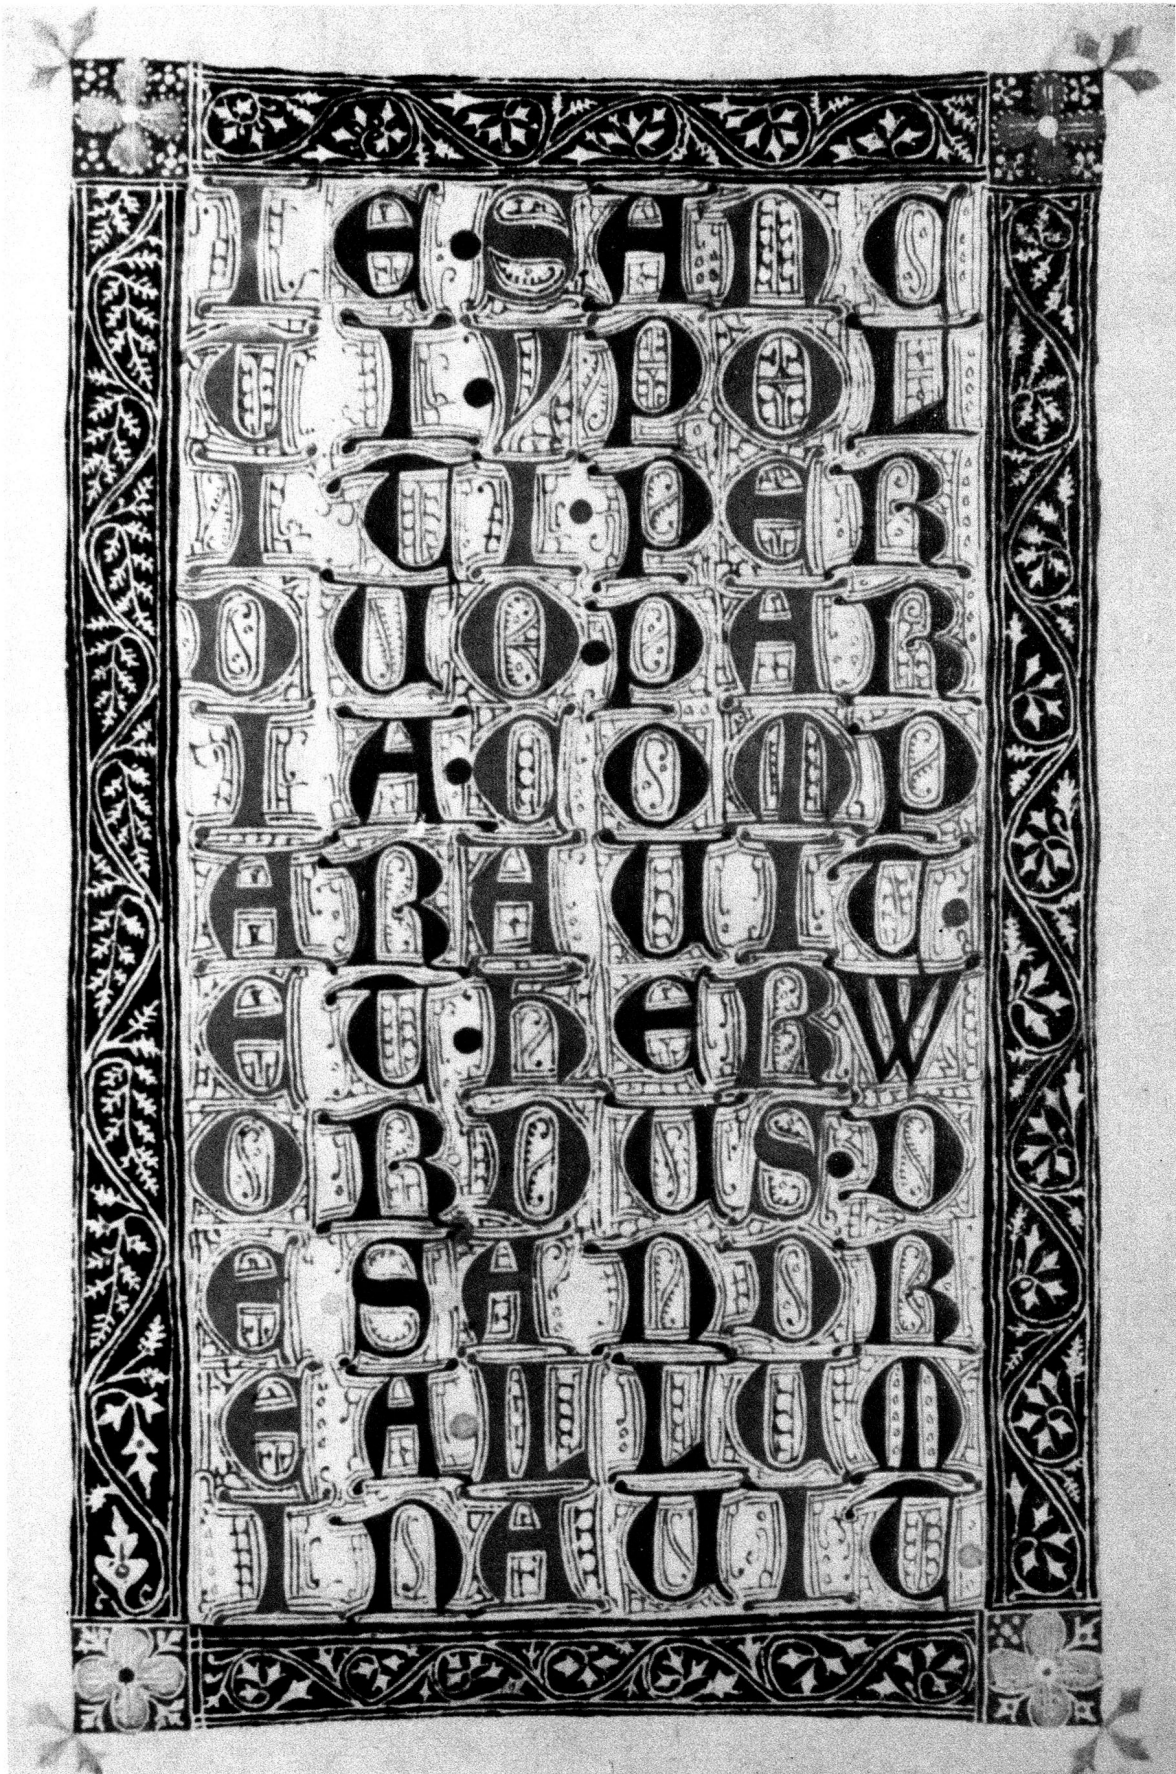 IE·SANC
TI·YPOL
ITI·PER
·DUO·PAR
IA·COMP
ARAUIT·
ET·HERW
ORDUS·D
E·SANDR
EA·ILLUM
INAUIT·